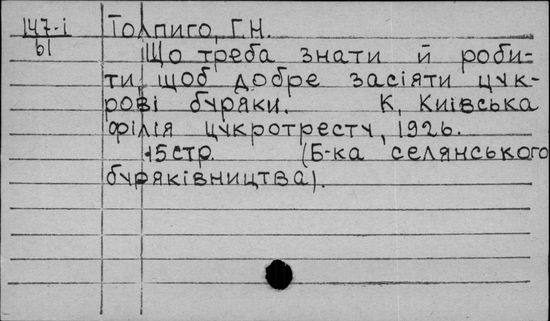 147-i Толпиго, Г.Н.
61 Що треба знати й роби-
ти, щоб добре засіяти цук-
рові буряки. К, Київська
філія цукротресту, 1926.
15стр. (Б-ка селянського
буряківництва).